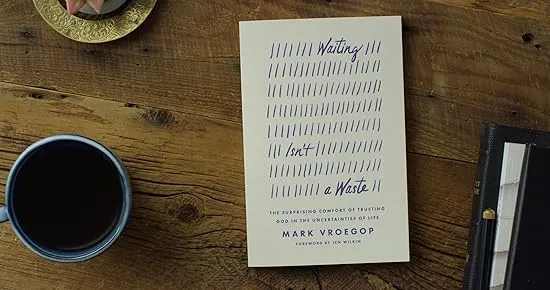 Waiting
Isn't
a Waste
THE SURPRISING COMFORT OF TRUSTING
GOD IN THE UNCERTAINTIES OF LIFE
MARK VROEGOP
FOREWORD BY JEN WILKIN